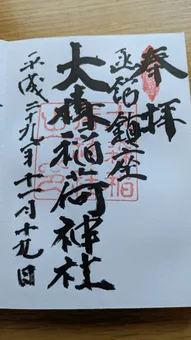 奉拝
鎮座
大椿稲荷神社
平成二十九年十一月十九日